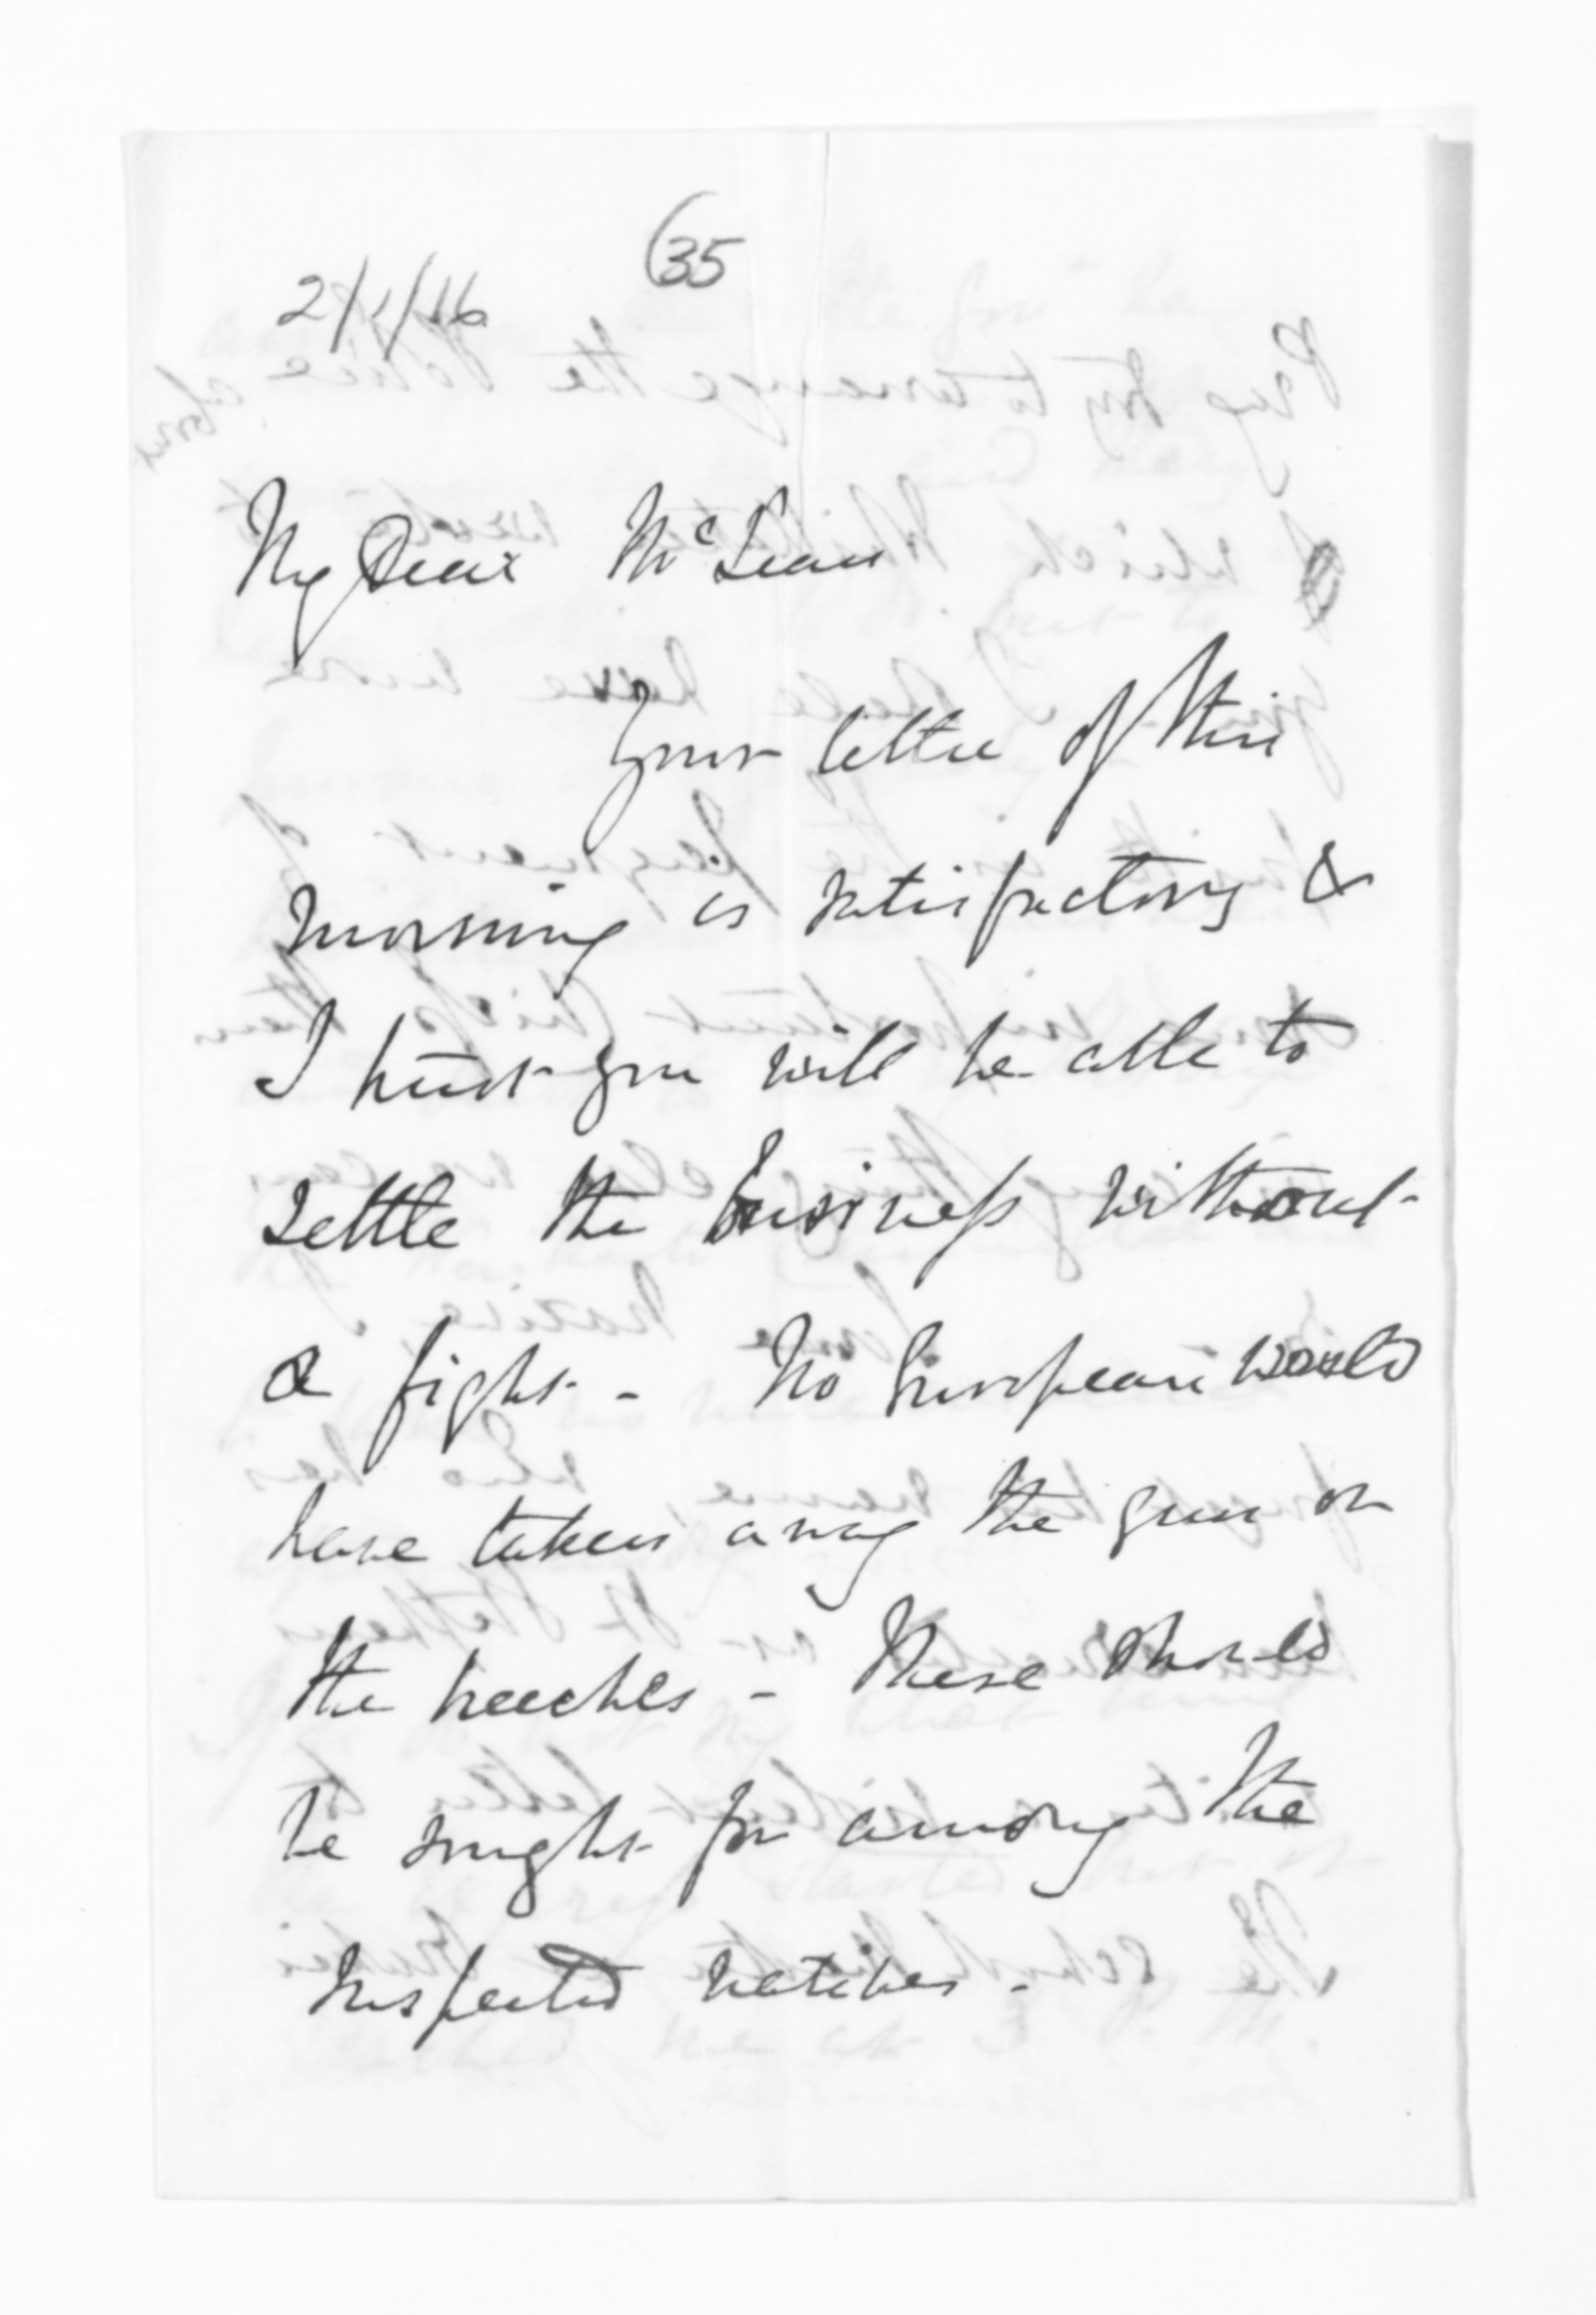 (35
2/1/16
My Dear McLean
Your letter of this
morning is satisfactory &
I trust you will be able to
settle the business without
a fight - No European would
have taken away the gun or
the breeches - These should
be sought for among the
suspected natives -